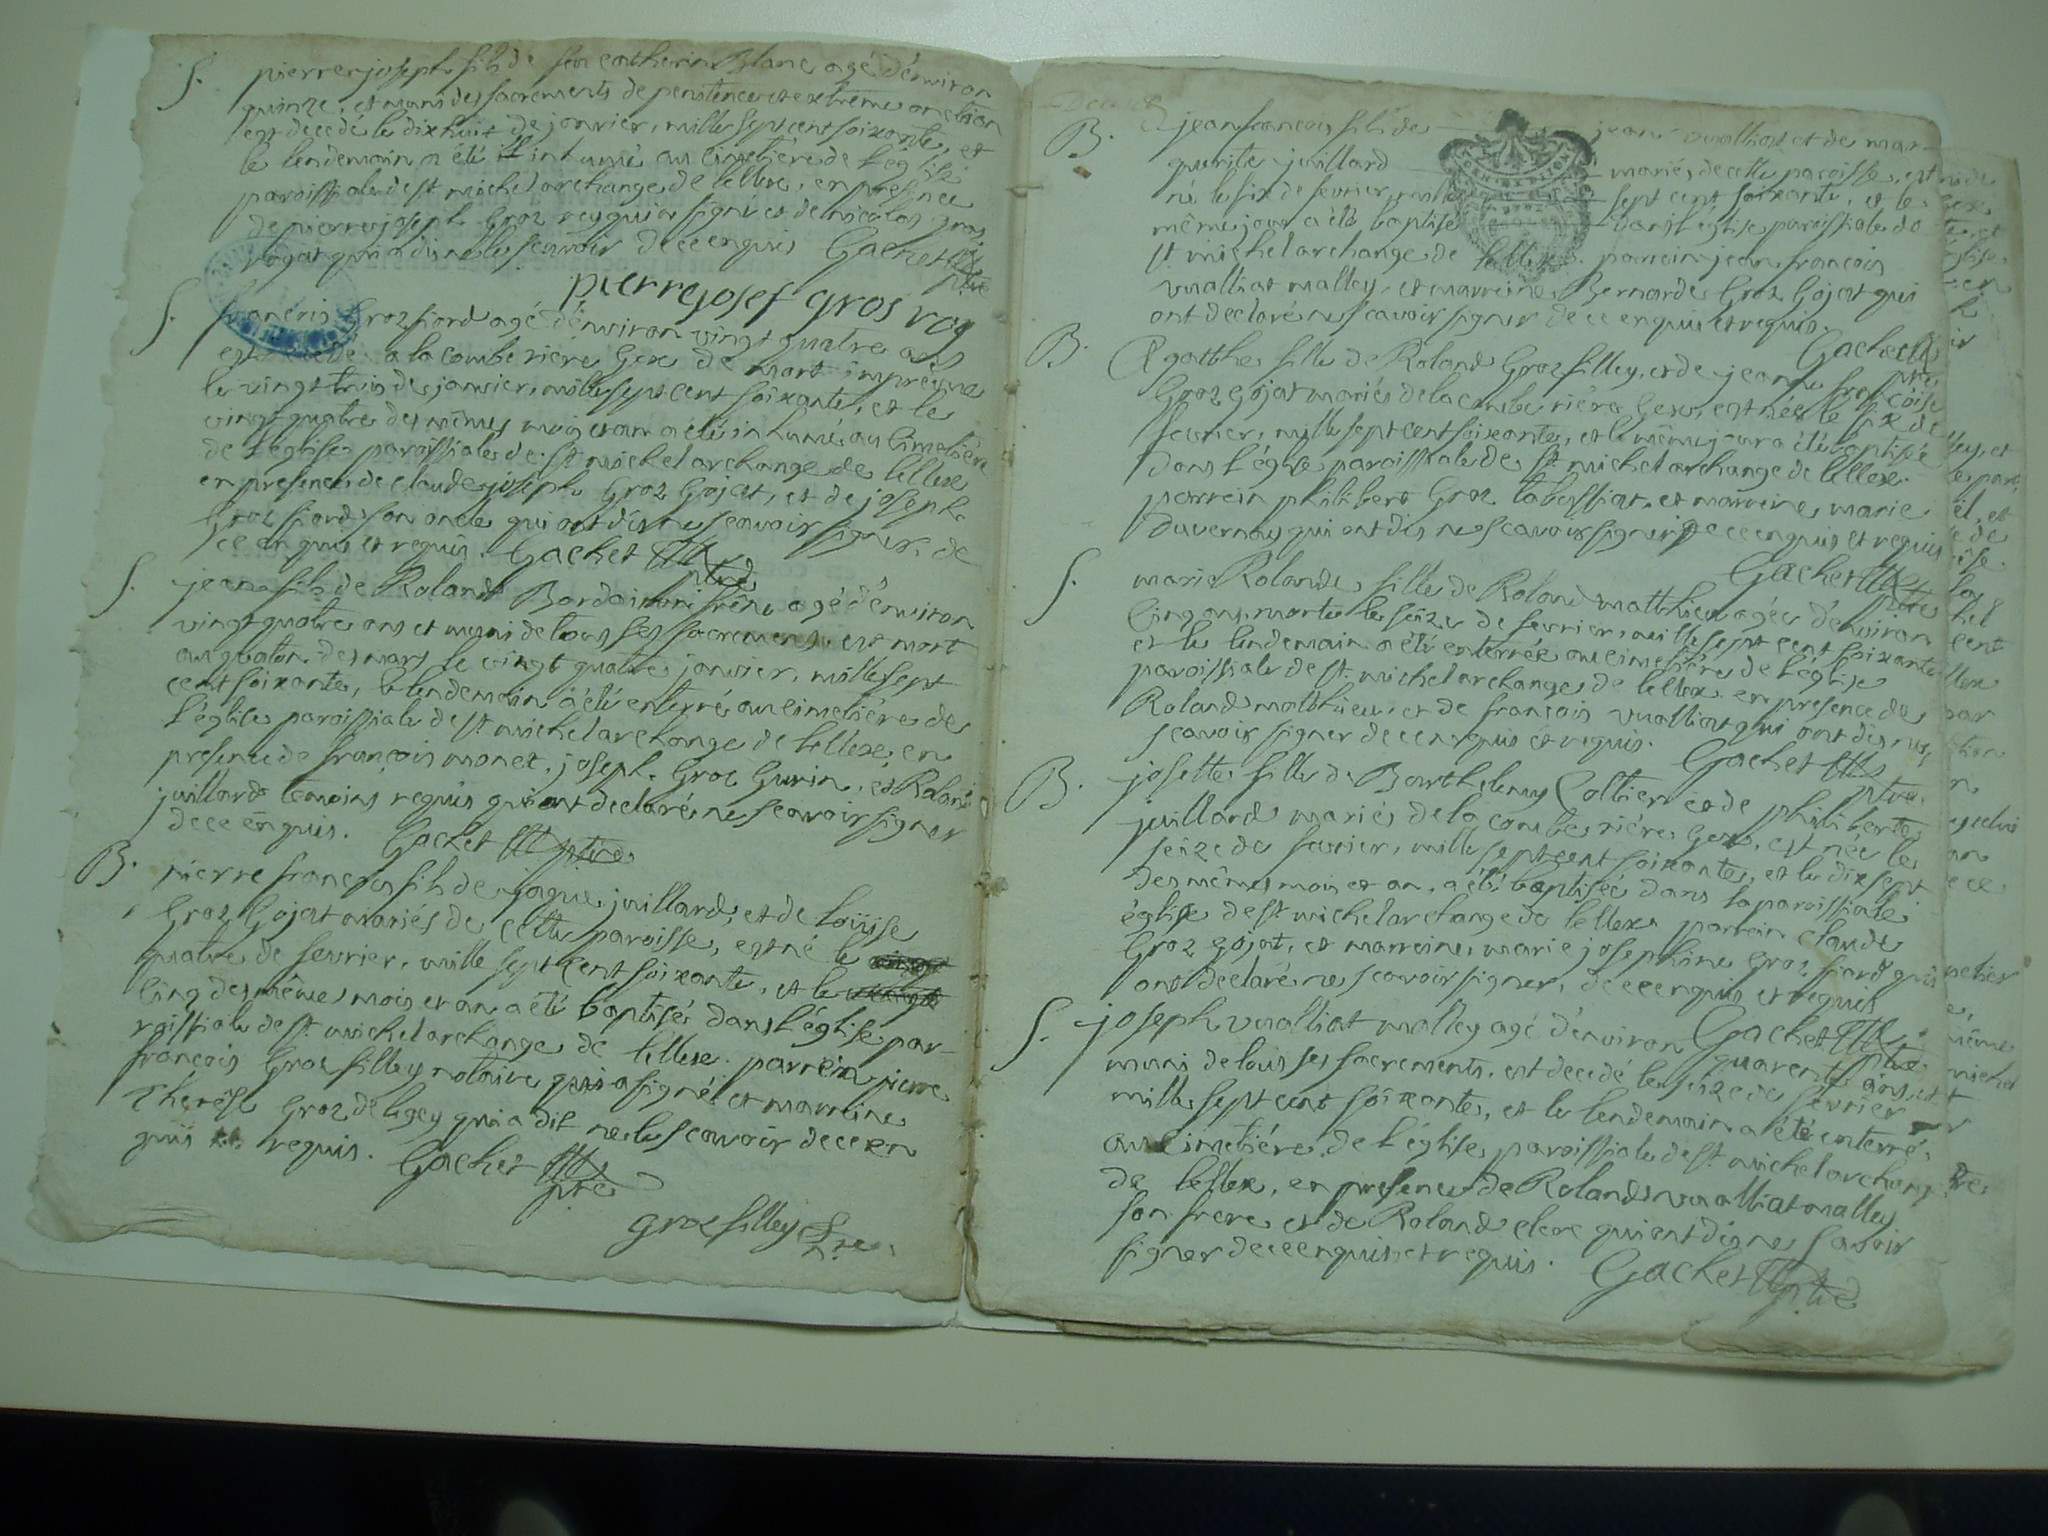 S. pierre joseph fils de feu catherin Blanc agé d'environ
quinze, et muni des sacrements de penitence et extrême onction
est decedé le dixhuit de janvier, mille sept cent soixante, et
le lendemain a été inhumé au cimetière de l'église
paroissiale de st michel archange de lellex, en presence
de pierre joseph Groz rey qui a signé et de nicolas gros
qui a dis ne le scavoir de ce enquis Gachet
ptre
pierre josef gros roy
S. francois Groz fiard agé d'environ vingt quatre ans
est decedé a la combe rière Gex de mort impreveue
le vingt trois de janvier, mille sept cent soixante, et le
vingt quatre des mêmes mois et an a été inhumé au cimetière
de l'église paroissiale de st michel archange de lellex
en presence de claude joseph Groz Gojat, et de joseph
Groz fiard son oncle qui ont dis ne scavoir signer, de
ce enquis et requis. Gachet
ptre
S. jean fils de Roland agé d'environ
vingt quatre ans et muni de tous ses sacrements est mort
au de mars le vingt quatre janvier, mille sept
cent soixante, le lendemain a été enterré au cimetière de
l'église paroissiale de st michel archange de lellex, en
presence de françois monet, joseph Groz Gurin, et Roland
juillard temoins requis qui ont declaré ne scavoir signer
de ce enquis. Gachet ptre
B. pierre françois fils de jaque juillard, et de Loüise
Groz Gojat mariés de cette paroisse, est né le
quatre de fevrier, mille sept cent soixante, et le
cinq des même mois et an a été baptisé dans l'église par-
roissiale de st michel archange de lellex. parrein pierre
françois Groz filley notaire qui a signé et marreine
Therése Groz delegey qui a dit ne le scavoir de ce en
quis requis. Gachet
ptre
groz filley
B. jean francois fils de jean vualliat et de mar-
guerite juillard mariés de cette paroisse, est
né le six de fevrier, mille sept cent soixante, et le
même jour a été baptisé dans l'église paroissiale de
st michel archange de lellex. parrein jean françois
vualliat malley, et marreine Bernarde Groz Gojat qui
ont declaré ne scavoir signer de ce enquis et requis.
Gachet
ptre
B. Agatthe fille de Roland Groz filley, et de jeanne françoise
Groz Gojat mariés de la combe rière Gex, est née le six de
fevrier, mille sept cent soixante, et le même jour a été baptisée
dans l'église paroissiale de st michel archange de lellex.
parrein philibert Groz tabussiat, et marreine marie
duvernay qui ont dis ne scavoir signer de ce enquis et requis
Gachet
ptre
S. marie Rolande fille de Roland matthieu agée d'environ
cinq ans, morte le seize de fevrier, mille sept cent soixante
et le lendemain a été enterrée au cimetière de l'église
paroissiale de st michel archange de lellex en presence de
Roland matthieu, et de françois vualliat qui ont dis ne
scavoir signer de ce enquis et requis.
Gachet
ptre
B. josette fille de Barthelemy Coltier et de philiberte
juillard mariés de la combe rière Gex, est née le
seize de fevrier, mille sept cent soixante, et le dixsept
des mêmes mois et an, a été baptisée dans la paroissiale
église de st michel archange de lellex parrein claude
Groz gojat, et marreine marie josephine Groz fiard qui
ont declaré ne scavoir signer, de ce enquis et requis
Gachet
ptre
S. joseph vualliat malley agé d'environ quarente ans, et
muni de tous ses sacrements, est decedé le seize de fevrier
mille sept cent soixante, et le lendemain a été enterré
au cimetière de l'église paroissiale de st michel archange
de lellex, en presence de Roland vualliat malley
son frere et de Roland clerc qui ont dis ne scavoir
signer de ce enquis et requis. Gachet ptre